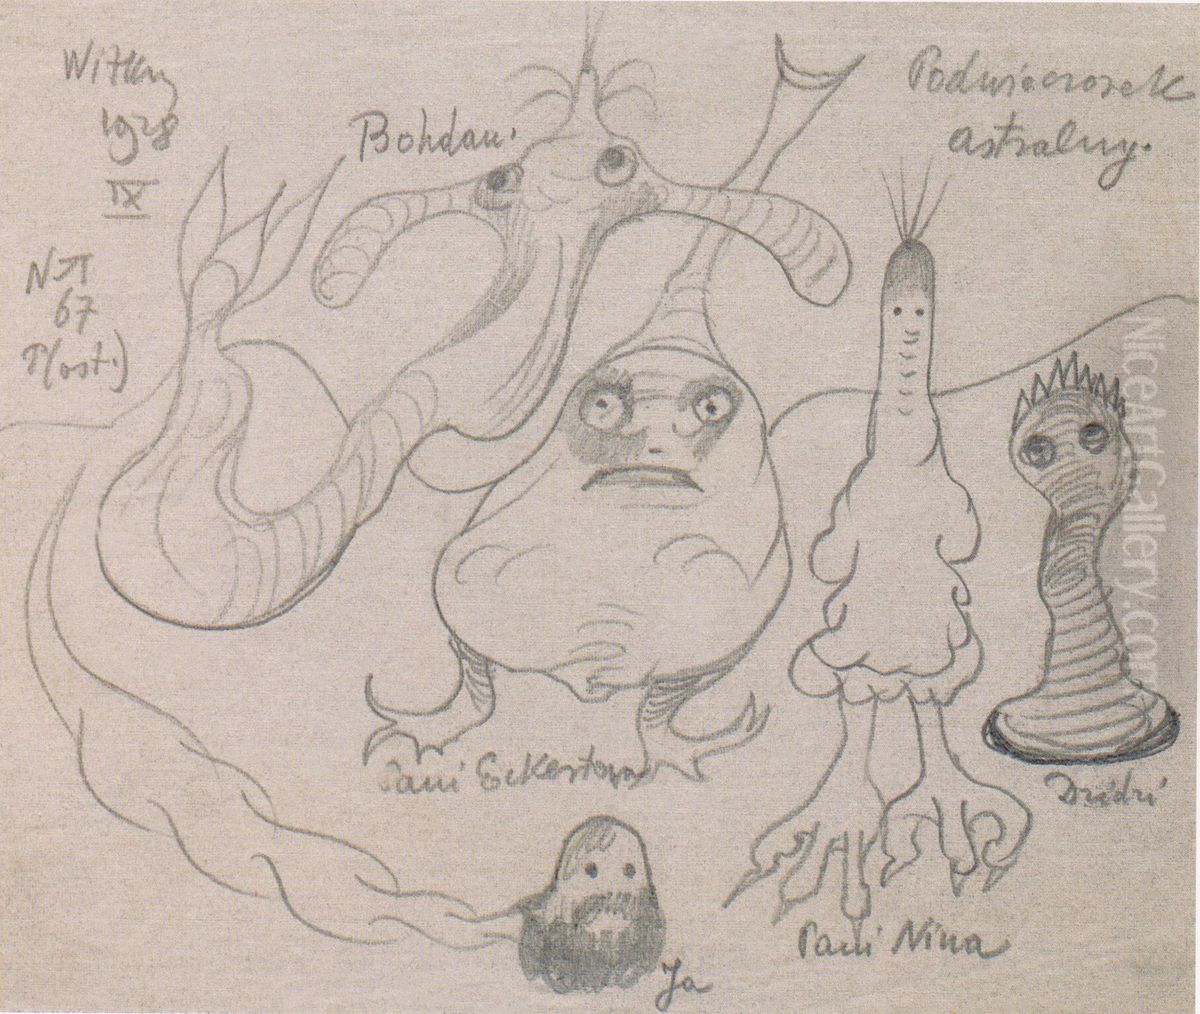 Witkacy
1928
IX
Nπ
67
T(ost.)
Bohdan.
Podwieczorek
astralny.
Pani Eckertowa
Pani Nina
Dzidzi
Ja
NiceArtGallery.com